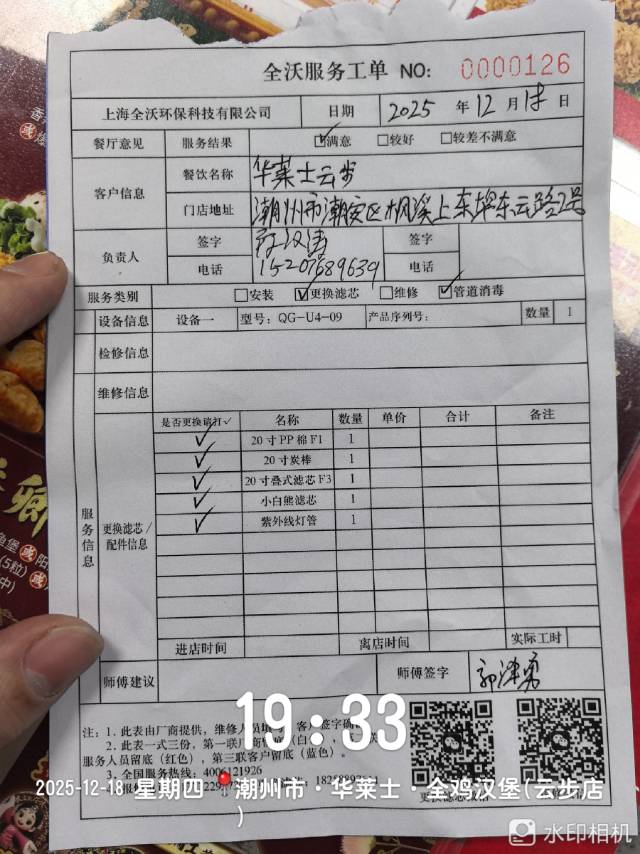 全沃服务工单 NO: 0000126
上海全沃环保科技有限公司 日期 2025 年 12 月 18 日
餐厅意见 服务结果 ☑满意 □较好 □较差不满意
客户信息 餐饮名称 华莱士云步
门店地址 潮州市潮安区枫溪上东埠东云路2号
负责人 签字 签字
电话 15207689639 电话
服务类别 □安装 ☑更换滤芯 □维修 ☑管道消毒
服务信息
设备信息 设备一 型号: QG-U4-09 产品序列号: 数量 1
检修信息
维修信息
更换滤芯/配件信息
是否更换请打✓ 名称 数量 单价 合计 备注
✓ 20寸PP棉F1 1
✓ 20寸炭棒 1
✓ 20寸叠式滤芯F3 1
✓ 小白熊滤芯 1
✓ 紫外线灯管 1
进店时间 离店时间 实际工时
师傅建议 师傅签字 郭泽勇
注: 1. 此表由厂商提供, 维修人员 客户签字确
2. 此表一式三份, 第一联厂商 (白
服务人员留底(红色), 第三联客户留底(蓝色)。
3. 全国服务热线: 4006121926
19:33
2025-12-18 星期四 潮州市·华莱士·全鸡汉堡(云步店)
水印相机